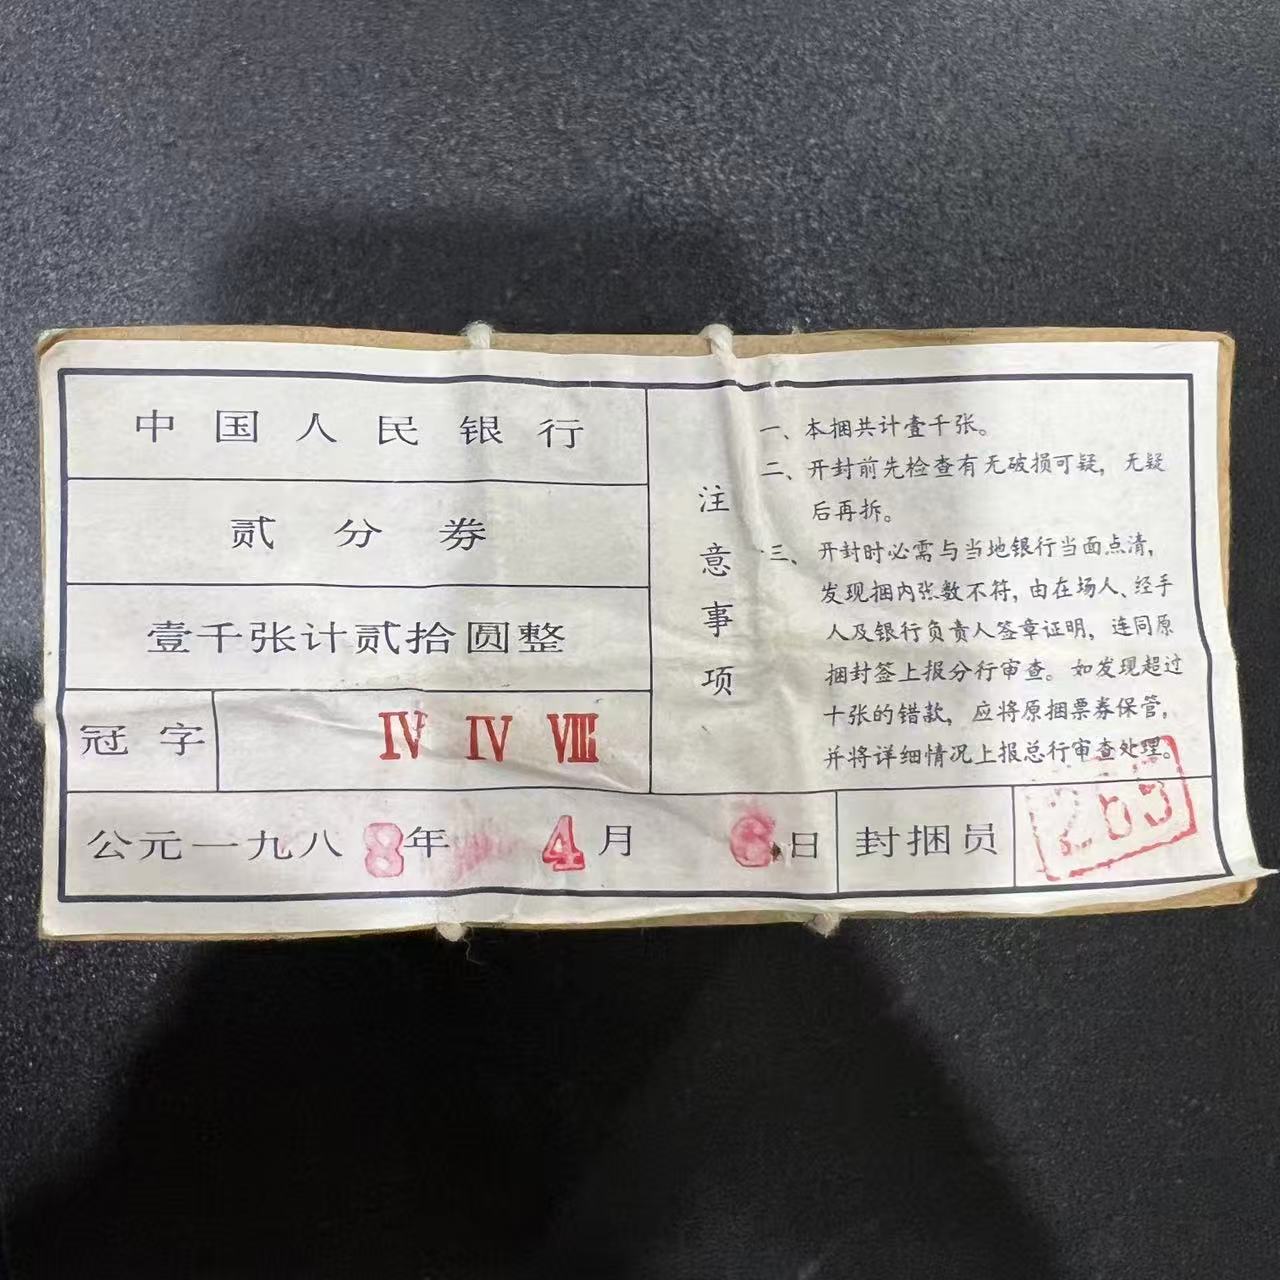 中国人民银行
贰分券
壹千张计贰拾圆整
冠字 Ⅳ Ⅳ Ⅷ
公元一九八8年 4月 日
封捆员
注意事项
一、本捆共计壹千张。
二、开封前先检查有无破损可疑，无疑
后再拆。
三、开封时必需与当地银行当面点清，
发现捆内张数不符，由在场人、经手
人及银行负责人签章证明，连同原
捆封签上报分行审查。如发现超过
十张的错款，应将原捆票券保管，
并将详细情况上报总行审查处理。